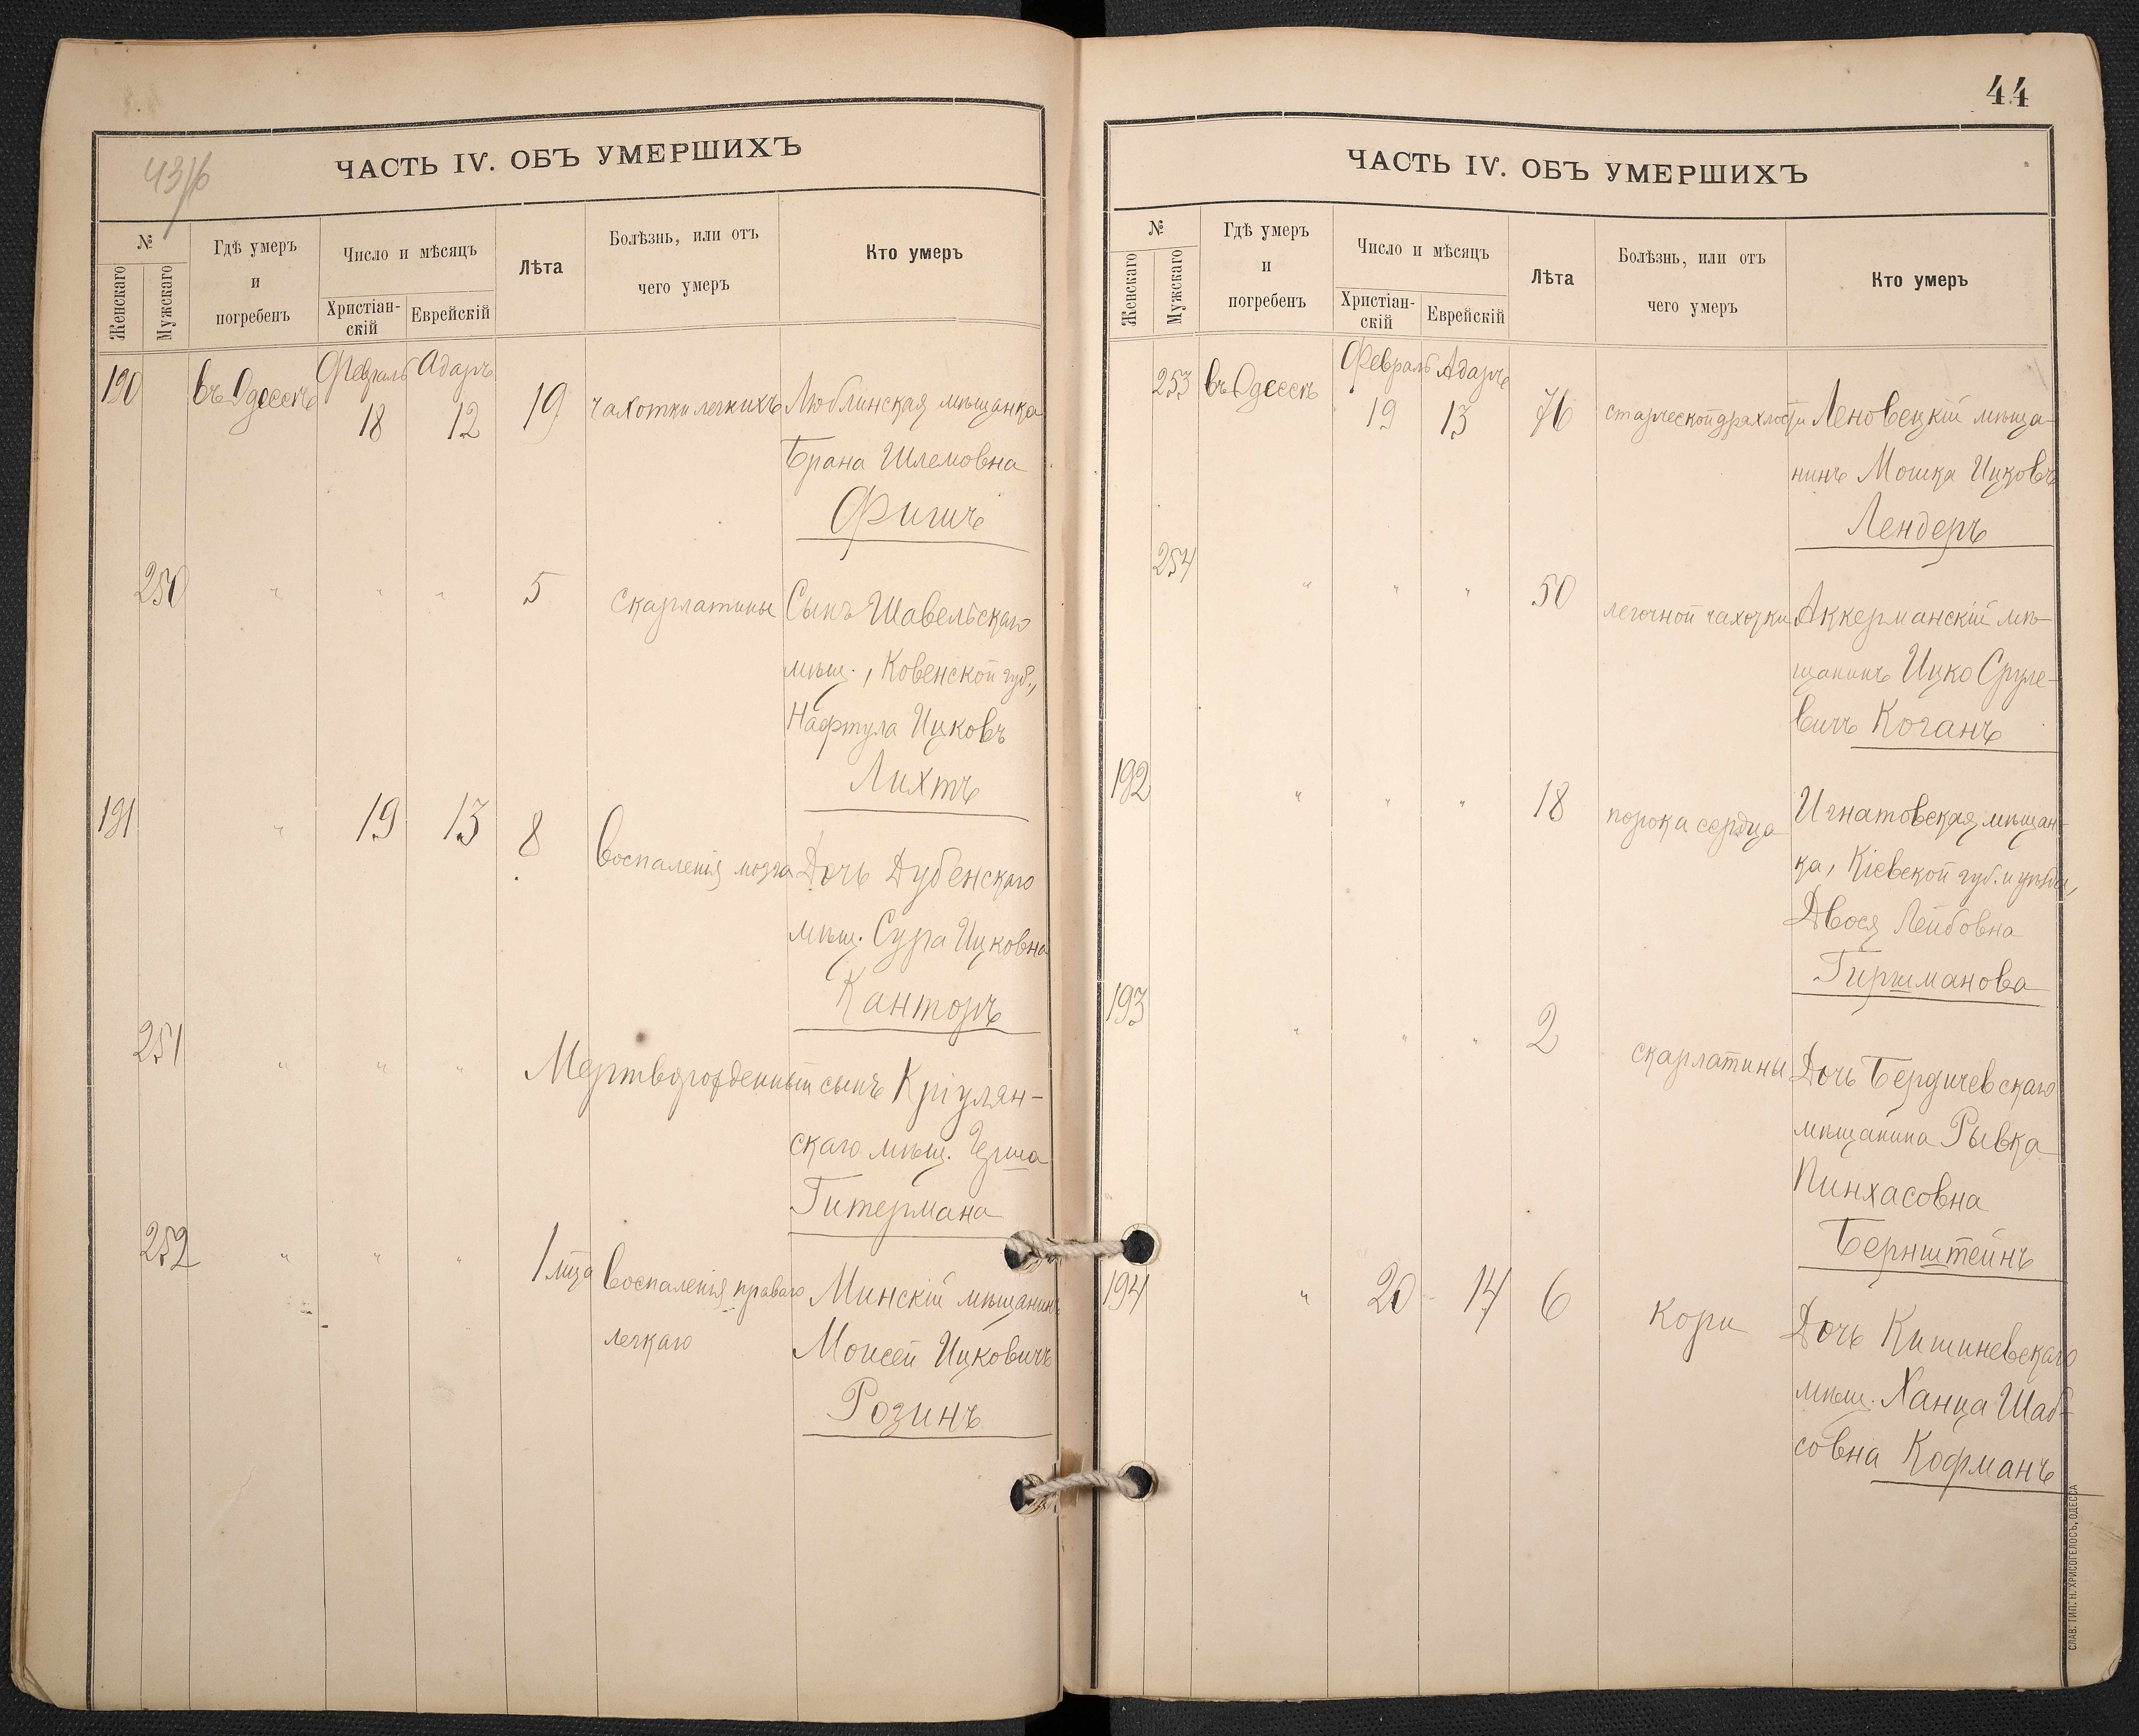 43/б
ЧАСТЬ IV. ОБЪ УМЕРШИХЪ
№
Женскаго
Мужскаго
Гдѣ умеръ
и
погребенъ
Число и мѣсяцъ
Христіан-
скій
Еврейскій
Лѣта
Болѣзнь, или отъ
чего умеръ
Кто умеръ
190 въ Одессѣ Февраль Адаръ
18 12 19 чахотки легкихъ Люблинская мѣщанка
Брана Шлемовна
Фишъ
250 " " " 5 скарлатины Сынъ Шавельскаго
мѣщ., Ковенской губ.,
Нафтула Ицковъ
Лихтъ
191 " 19 13 8 воспаленія мозга Дочь Дубенскаго
мѣщ. Сура Ицковна
Канторъ
251 " " " Мертворожденный сынъ Кріулян-
скаго мѣщ.
Гитермана
252 " " " 1 мца воспаленія праваго Минскій мѣщанинъ
легкаго Моисей Ицковичъ
Розинъ
44
ЧАСТЬ IV. ОБЪ УМЕРШИХЪ
№
Женскаго
Мужскаго
Гдѣ умеръ
и
погребенъ
Число и мѣсяцъ
Христіан-
скій
Еврейскій
Лѣта
Болѣзнь, или отъ
чего умеръ
Кто умеръ
253 въ Одессѣ Февраль Адаръ
19 13 76 старческой дряхлости Леновецкій мѣща-
нинъ Мошка Ицковъ
Лендеръ
254 " " " 50 легочной чахотки Аккерманскій мѣ-
щанинъ Ицко Сруле-
вичъ Коганъ
192 " " " 18 порока сердца Игнатовская мѣщан-
ка, Кіевской губ. и уѣзда,
Двося Лейбовна
Гиршманова
193 " " " 2 скарлатины Дочь Бердичевскаго
мѣщанина Рывка
Пинхасовна
Бернштейнъ
194 " 20 14 6 кори Дочь Кишиневскаго
мѣщ. Ханца Шаб-
совна Кофманъ
СЛАВ. ТИП. Н. ХРИСОГЕЛОСЪ, ОДЕССА